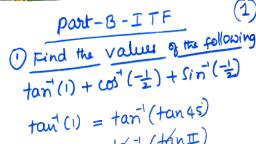 Part-B-ITF
(1)
① Find the values of the following
tan⁻¹(1) + cos⁻¹(-1/2) + sin⁻¹(-1/2)
tan⁻¹(1) = tan⁻¹(tan 45)
(tan π